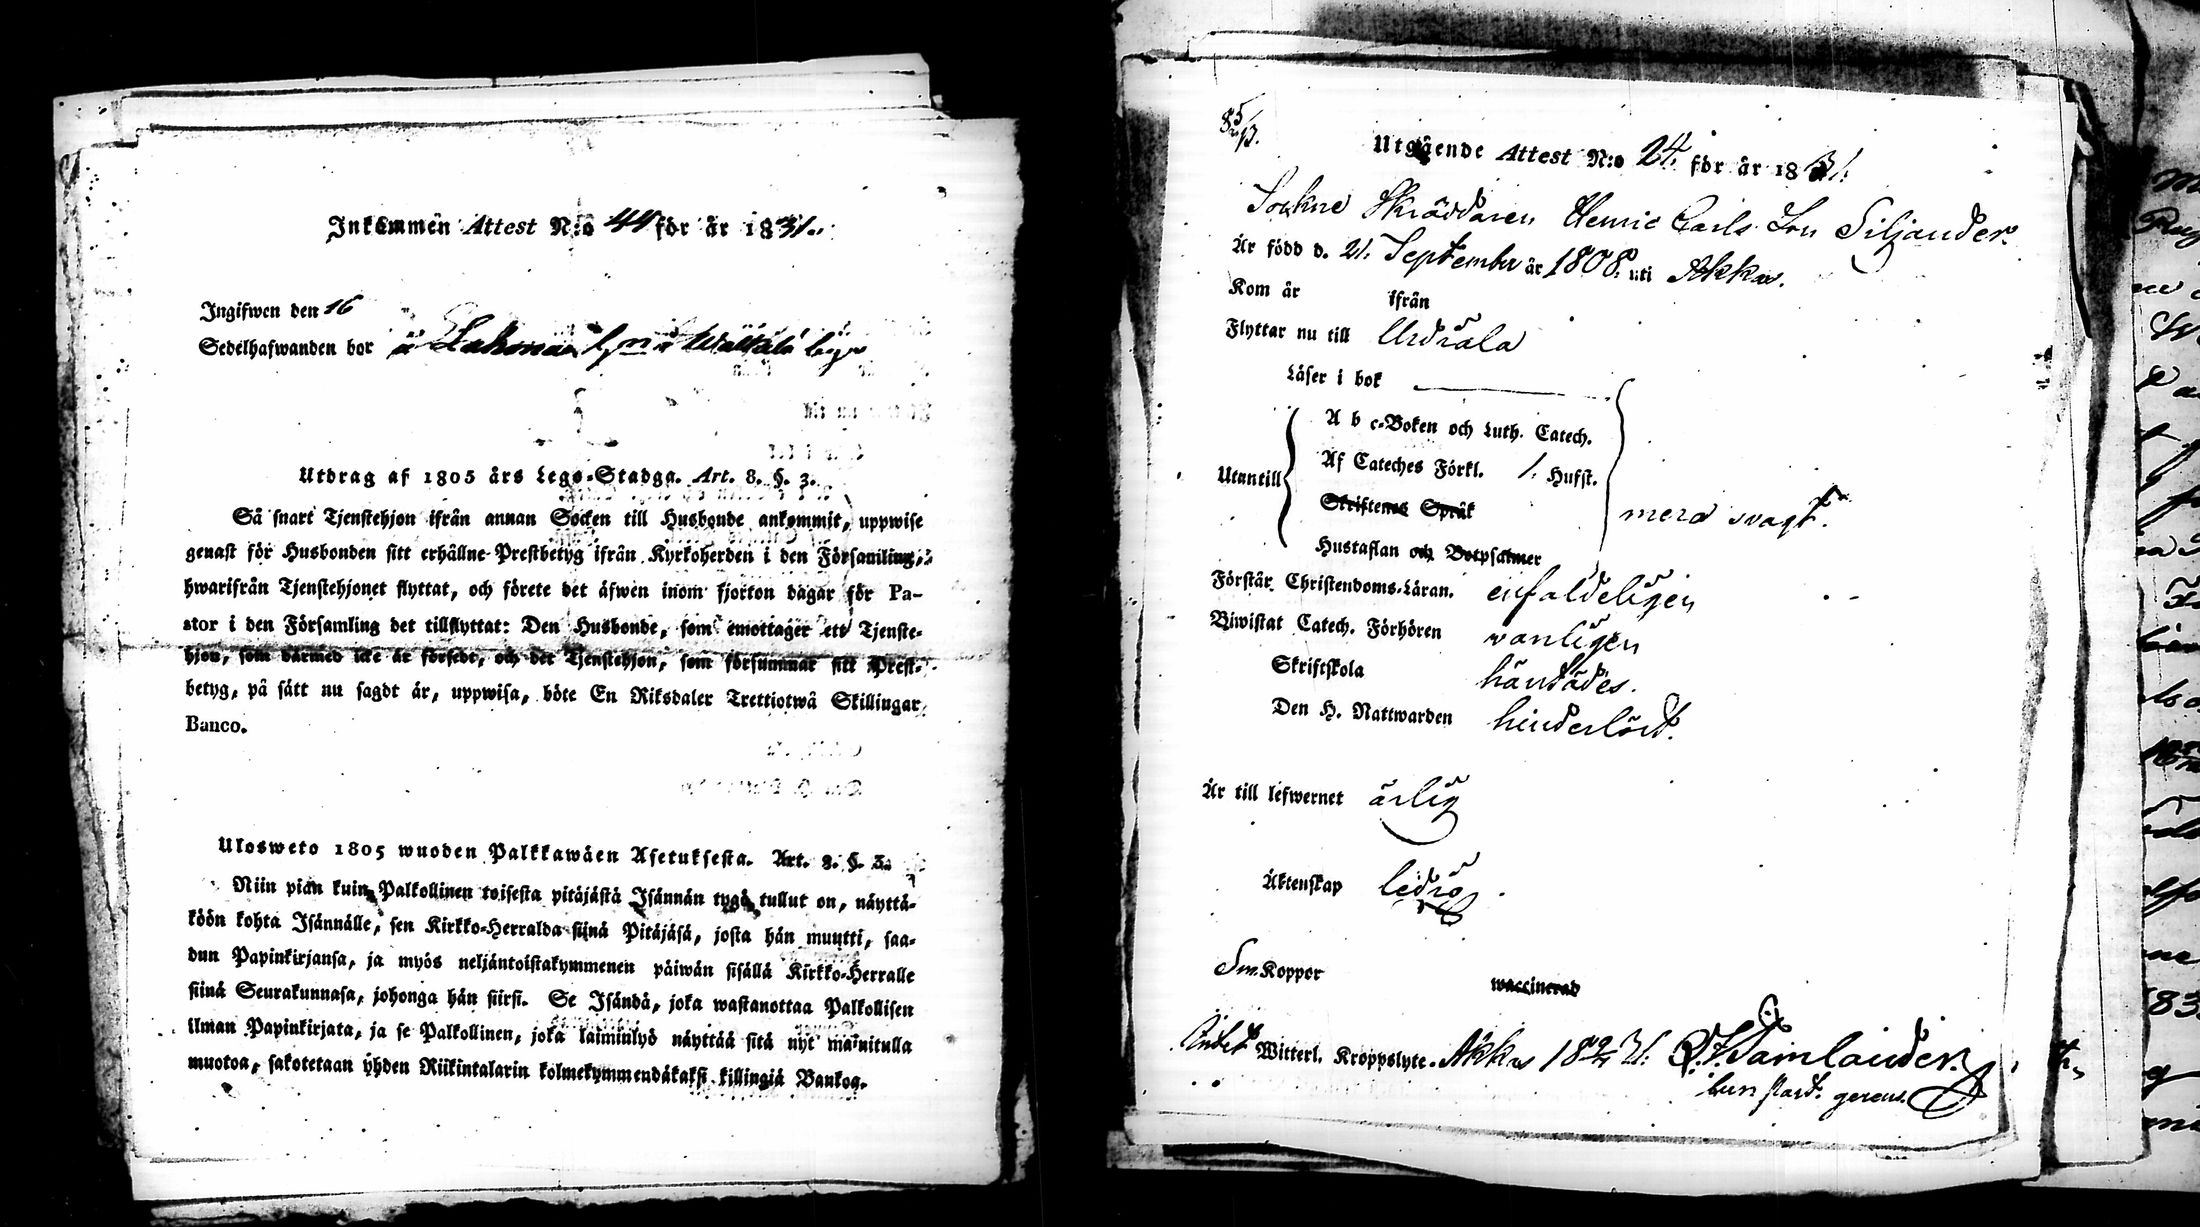 Inkommen Attest N:o 44 för år 1831.
Ingifwen den 16
Sedelhafwanden bor å Lahonen by
Utdrag af 1805 års Lego-Stadga. Art. 8. §. 3.
Så snart Tjenstehjon ifrån annan Socken till Husbonde ankommit, uppwise
genast för Husbonden sitt erhållne Prestbetyg ifrån Kyrkoherden i den Församling,
hwarifrån Tjenstehjonet flyttat, och förete det äfwen inom fjorton dagar för Pa-
stor i den Församling det tillflyttat: Den Husbonde, som emottager ett Tjenste-
hjon, som därmed icke är försedt, och det Tjenstehjon, som försummar sitt Prest-
betyg, på sätt nu sagdt är, uppwisa, böte En Riksdaler Trettiotwå Skillingar
Banco.
Ulosweto 1805 wuoden Palkkawäen Asetuksesta. Art. 8. §. 3.
Niin pian kuin Palkollinen toisesta pitäjästä Isännän tygö tullut on, näyttä-
köön kohta Isännälle, sen Kirkko-Herralda siinä Pitäjäsä, josta hän muutti, saa-
dun Papinkirjansa, ja myös neljäntoistakymmenen päiwän sisällä Kirkko-Herralle
siinä Seurakunnasa, johonga hän siirsi. Se Isändä, joka wastanottaa Palkollisen
ilman Papinkirjata, ja se Palkollinen, joka laiminlyö näyttää sitä nyt mainitulla
muotoa, sakotetaan yhden Riikintalarin kolmekymmendäkaksi killingiä Bankoa.
85/13.
Utgående Attest N:o 24. för år 1831.
Sockne Skräddaren Henric Carls Son Siljander.
Är född d. 21. September år 1808. uti Akkas.
Kom år ifrån
Flyttar nu till Urdiala
Läser i bok
A b c-Boken och Luth. Catech.
Af Cateches Förkl. 1. Hufst.
Utantill
Skriftenes Språk
merd svagt.
Hustaflan och Botpsalmer
Förstår Christendoms-Läran. enfaldeligen
Biwistat Catech. Förhören wanligen
Skriftskola
Den H. Nattwarden hinderlöst.
Är till lefwernet ärlig
Äktenskap ledig
Sm.Koppor waccinerad
Witterl. Kroppslyte. Akkas